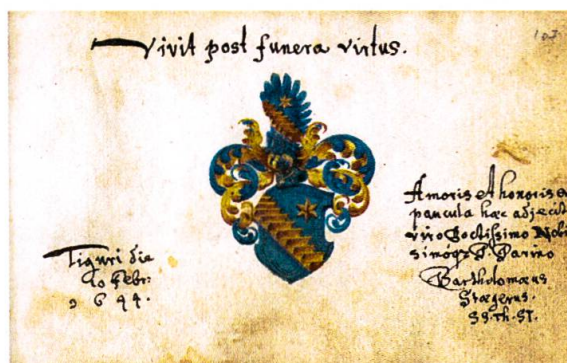 Vivit post funera virtus.
Tiguri die
10 Febr:
1644.
Amoris et honoris
paucula hæc adjecit
viro Doctissimo Nobi
simóqz D.
Bartholomæus
Stægerus.
SS. Th. St.